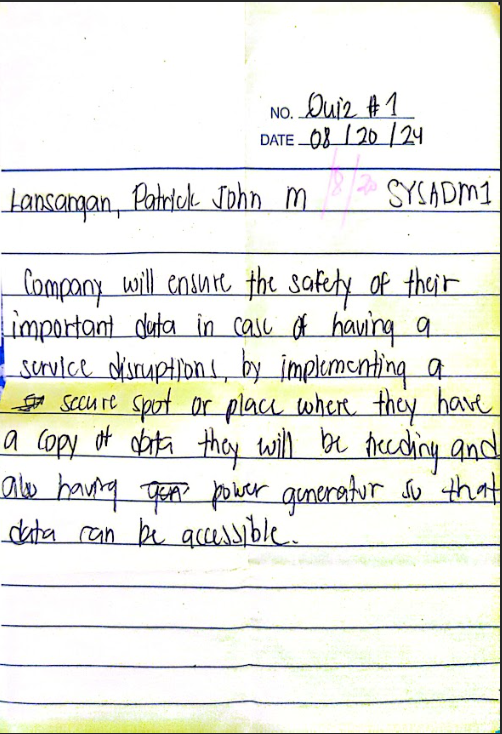 NO. Quiz #1
DATE 08 / 20 / 24
8/20
Lansangan, Patrick John M SYSADM1
Company will ensure the safety of their
important data in case of having a
service disruptions, by implementing a
secure spot or place where they have
a copy of data they will be needing and
also having gen power generator so that
data can be accessible.